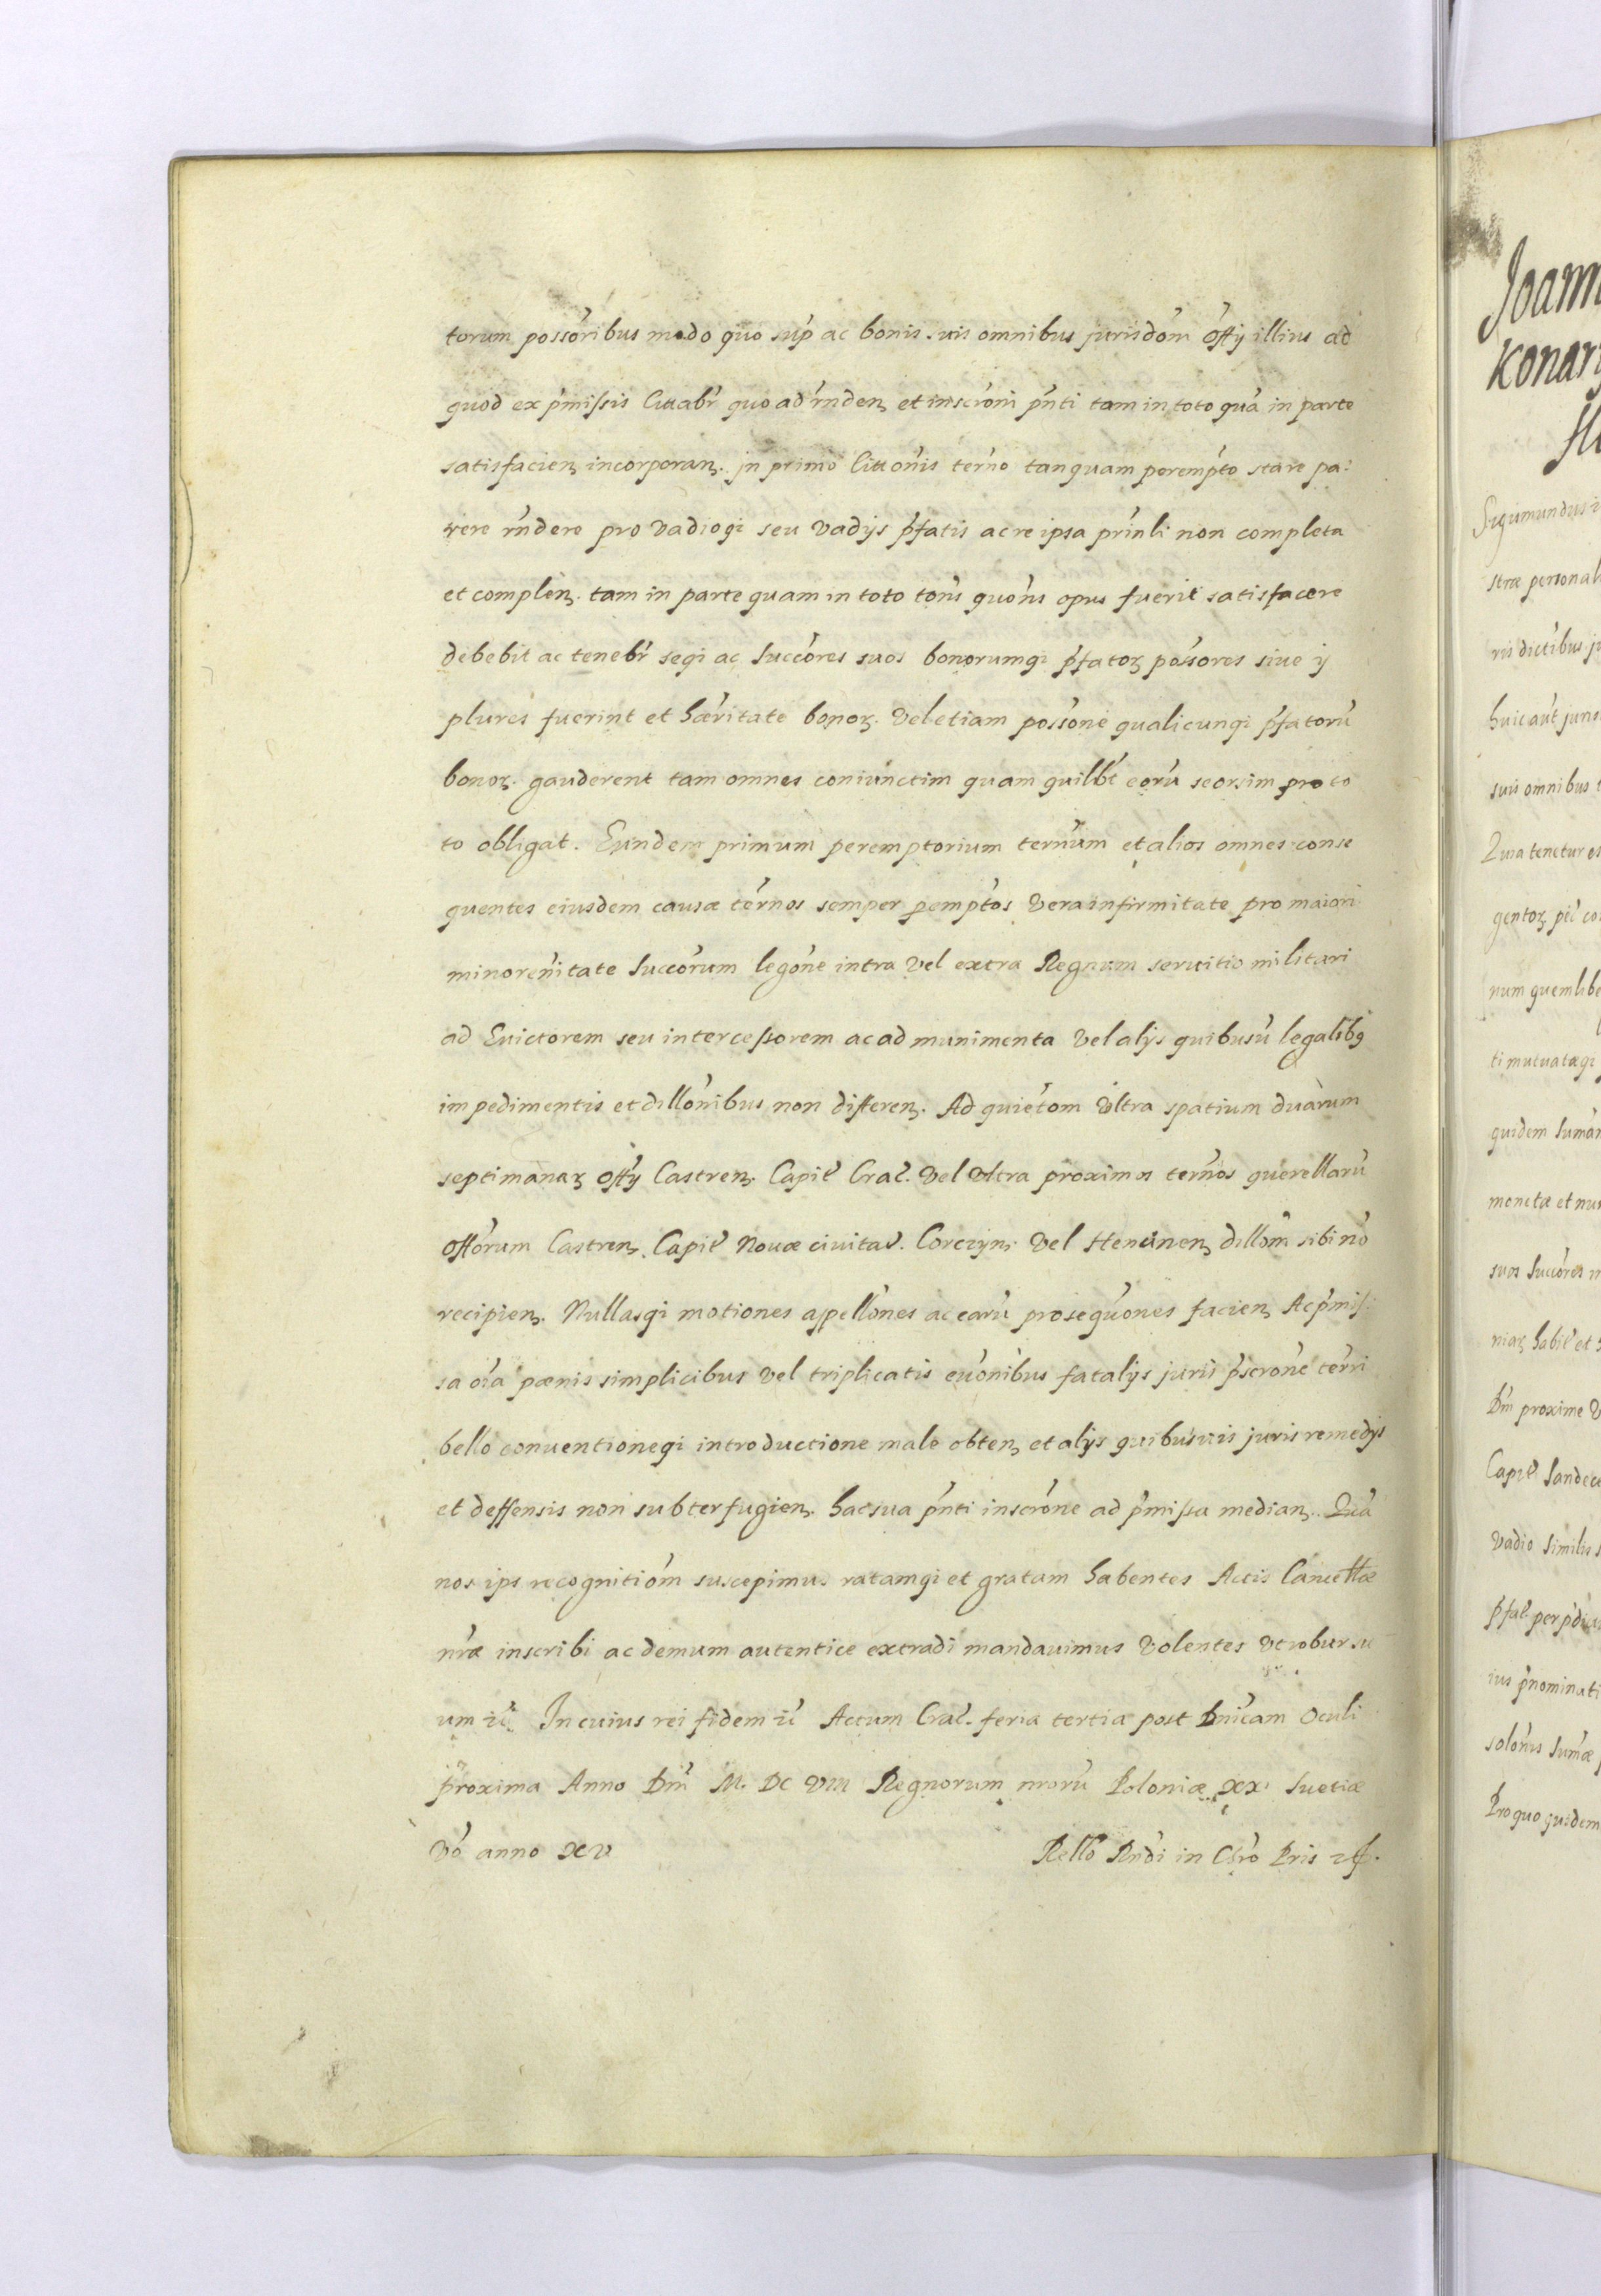 torum possoribus modo quo sup ac bonis suis omnibus jurisdom offy illius ad
quod ex pmissis Cittabr quo ad rnden et inscroni pnti tam in toto qua in parte
satisfacien incorporan. jn primo Cittonis terno tanquam perempto stare pa:
rere rndere pro vadioqi seu vadijs pfatis ac re ipsa prinli non completa
et complen. tam in parte quam in toto tons quons opus fuerit satisfacere
debebit ac tenebr seqi ac Succores suos bonorumqi pfatoz possores siue ij
plures fuerint et hæritate bonoz. vel etiam possone qualicunqi pfatorū
bonoz. gauderent tam omnes coniunctim quam quilbt eorū seorsim pro to
to obligat. Eundem primum peremptorium ternum et alios omnes conse
quentes eiusdem causæ ternos semper pemptos vera infirmitate pro maiori
minorenitate Succorum legone intra vel extra Regnum seruitio militari
ad Euictorem seu intercessorem ac ad munimenta vel alijs quibusu legalibq
impedimentis et dillonibus non differen. Ad quietom vltra spatium duarum
septimanaz offy Castren. Capit Crac. vel vltra proximos ternos querellarū
offorum Castren. Capit Nouæ ciuitat. Corczyn. vel dillom sibi no
recipien. Nullasqi motiones appellones ac earū prosequones facien Ac pmis:
sa oia pænis simplicibus vel triplicatis euonibus fatalijs juris pscrone terri
bello conuentioneqi introductione male obten et alijs quibusuis juris remedijs
et deffensis non subterfugien. hac sua pnti inscrone ad pmissa median. Qua
nos ips recognitiom suscepimus ratamqi et gratam habentes Actis Cancellæ
nræ inscribi ac demum autentice extradi mandauimus volentes vt robur su
um zc. In cuius rei fidem zc Actum Crac. feria tertia post Dnicam Oculi
proxima Anno Dni M. DC VIII Regnorum nrorū Poloniæ xx. Suetiæ
vo anno xv Rello Rndi in Chro Pris zc.
Joann
Konar
Sigismundus
stræ personal
ris dictibus
huic aut
suis omnibus
Quia tenetur
gentoz
num quemlibe
ti mutuatæqi
quidem Sumā
monetæ et nu
suos Succores
niaz habit et
Dni proxime v
Capit Sandec
vadio similis
pfat per
ius pnominati
solonis Sumæ
Pro quo quidem